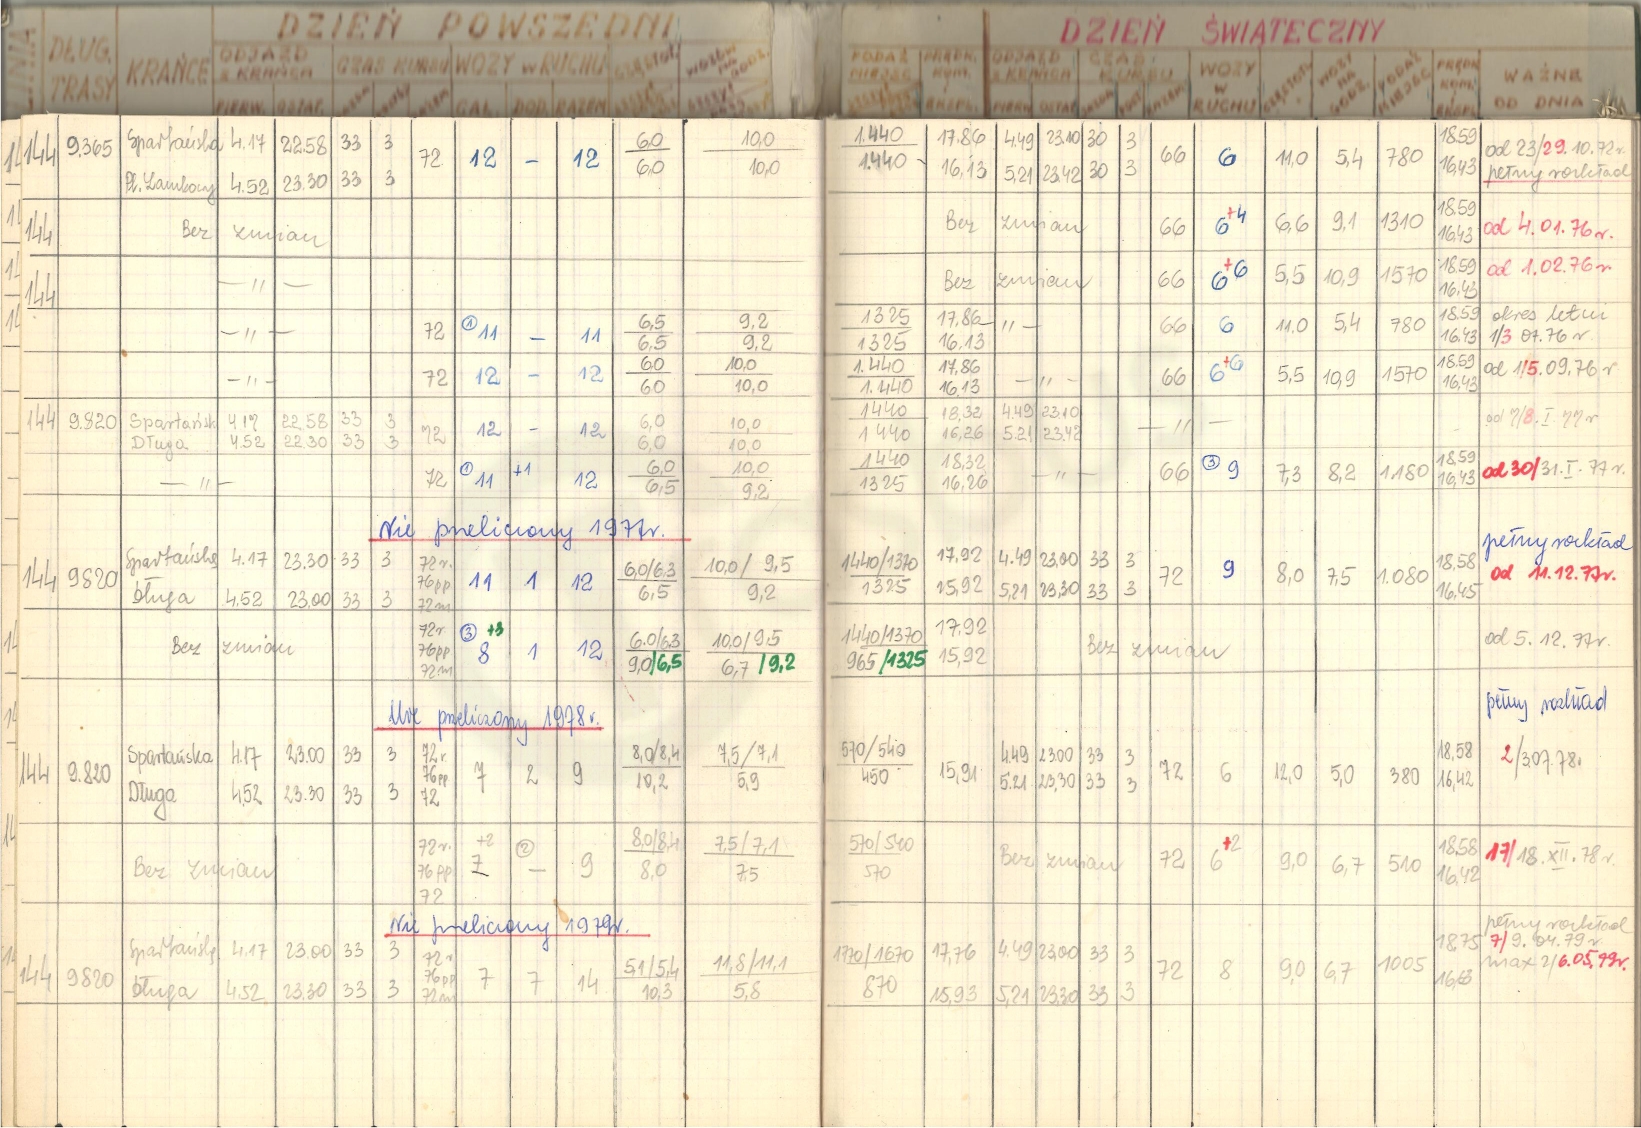 DZIEŃ POWSZEDNI DZIEŃ ŚWIĄTECZNY
LINIA DŁUG. TRASY KRAŃCE ODJAZD z KRAŃCA CZAS KURSU WOZY w RUCHU WOZÓW NA GODZ. PODAŻ MIEJSC PRĘDK. KOM. EKSPL. ODJAZD z KRAŃCA CZAS KURSU WOZY W RUCHU WOZY NA GODZ. PODAŻ MIEJSC PRĘDK. KOM. EKSPL. WAŻNE OD DNIA
PIERW. OSTAT. RAZEM CAŁ. DOD. RAZEM PIERW. OSTAT.
144 9.365 Spartańska 4.17 22.58 33 3 72 12 – 12 6,0 10,0 1.440 17,86 4.49 23.10 30 3 66 6 11,0 5,4 780 18.59 od 23/29.10.72r.
Pl. Zamkowy 4.52 23.30 33 3 6,0 10,0 1.440 16,13 5.21 23.42 30 3 16,43 pełny rozkład
144 Bez zmian Bez zmian 66 6+4 6,6 9,1 1310 18.59 16,43 od 4.01.76r.
144 –"– Bez zmian 66 6+6 5,5 10,9 1570 18.59 16,43 od 1.02.76r
–"– 72 ① 11 – 11 6,5 9,2 1325 17,86 –"– 66 6 11.0 5,4 780 18.59 okres letni
6,5 9,2 1325 16.13 16.43 1/3 07.76r.
–"– 72 12 – 12 6,0 10,0 1.440 17,86 –"– 66 6+6 5,5 10,9 1570 18.59 od 1/5.09.76r
6,0 10,0 1.440 16,13 16,43
144 9.820 Spartańsk 4.17 22.58 33 3 72 12 – 12 6,0 10,0 1440 18,32 4.49 23.10 –"– od 7/8.I.77r
Długa 4.52 22.30 33 3 6,0 10,0 1440 16,26 5.21 23.42
–"– 72 ① 11 +1 12 6,0 10,0 1440 18,32 –"– 66 ③ 9 7,3 8,2 1.180 18,59 od 30/31.I.77r.
6,5 9,2 1325 16,26 16,43
Nie przeliczony 1977r.
pełny rozkład
144 9820 Spartańska 4.17 23.30 33 3 72r. 76pp 72m 11 1 12 6,0/6,3 10,0/9,5 1440/1370 17,92 4.49 23.00 33 3 72 9 8,0 7,5 1.080 18,58 od 11.12.77r.
Długa 4.52 23.00 33 3 6,5 9,2 1325 15,92 5,21 23.30 33 3 16,45
Bez zmian 72r 76pp 72m ③ 8 +3 1 12 6.0/6.3 10,0/9,5 1440/1370 17,92 Bez zmian od 5.12.77r.
9,0/6,5 6,7/9,2 965/1325 15,92
Nie przeliczony 1978r.
pełny rozkład
144 9.820 Spartańska 4.17 23.00 33 3 72r. 76pp 72 7 2 9 8,0/8,4 7,5/7,1 570/540 15,91 4.49 23.00 33 3 72 6 12,0 5,0 380 18,58 2/3.07.78r.
Długa 4.52 23.30 33 3 10,2 5,9 450 5.21 23,30 33 3 16,42
Bez zmian 72r. 76pp 72 7 +2 ② – 9 8,0/8,4 7,5/7,1 570/540 Bez zmian 72 6+2 9,0 6,7 510 18,58 17/18.XII.78r.
8,0 7,5 570 16,42
Nie przeliczony 1979r.
pełny rozkład
144 9820 Spartańska 4.17 23.00 33 3 72r 76pp 72m 7 7 14 5,1/5,4 11,8/11,1 1770/1670 17,76 4.49 23.00 33 3 72 8 9,0 6,7 1005 18.75 7/9.04.79r
Długa 4.52 23.30 33 3 10,3 5,8 870 15,93 5,21 23.30 33 3 16,63 max 2/6.05.79r.